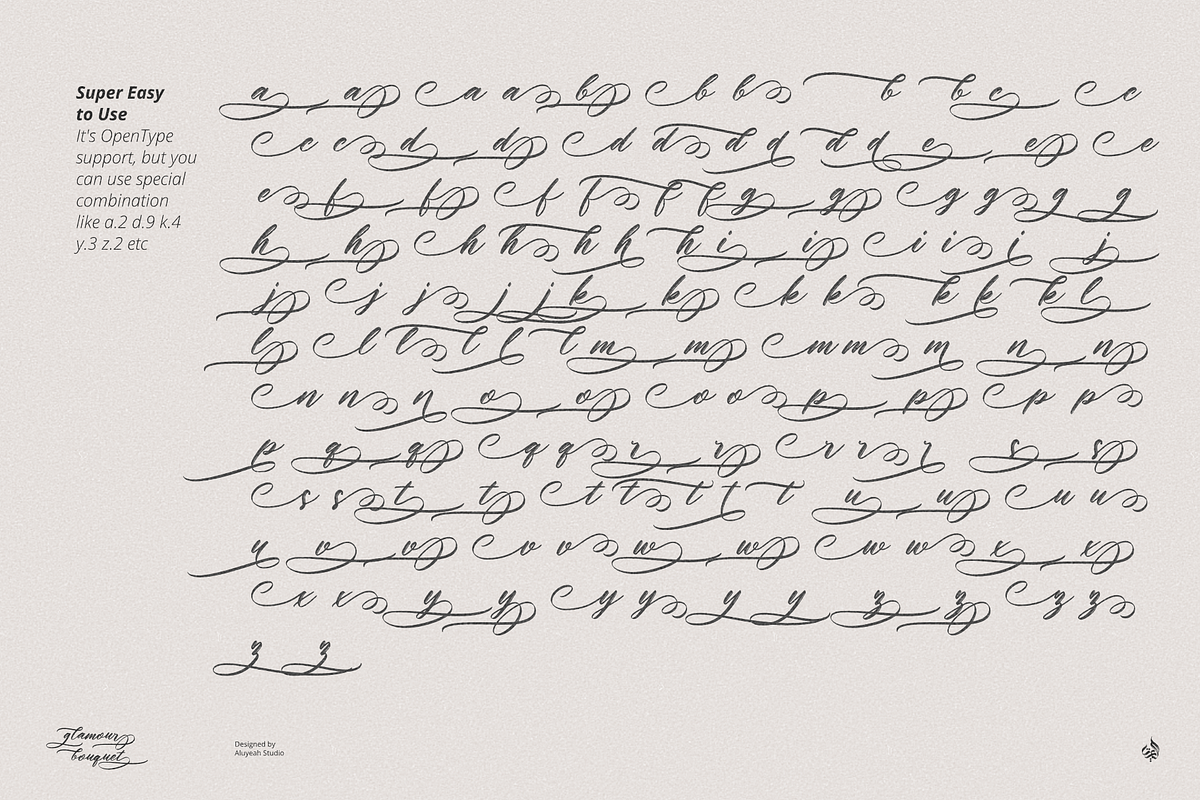 Super Easy
to Use
It's OpenType
support, but you
can use special
combination
like a.2 d.9 k.4
y.3 z.2 etc
a a a a b b b b b c c
c c d d d d d d d d e e e
e f f f f f f g g g g g g
h h h h h h h i i i i i j
j j j j j k k k k k k k l
l l l l l l m m m m m n n
n n n o o o o p p p p
p q q q q r r r r r s s
s s t t t t t t t u u u u
u v v v v w w w w x x
x x y y y y y y z z z z
z z
glamour
bouquet
Designed by
Aluyeah Studio